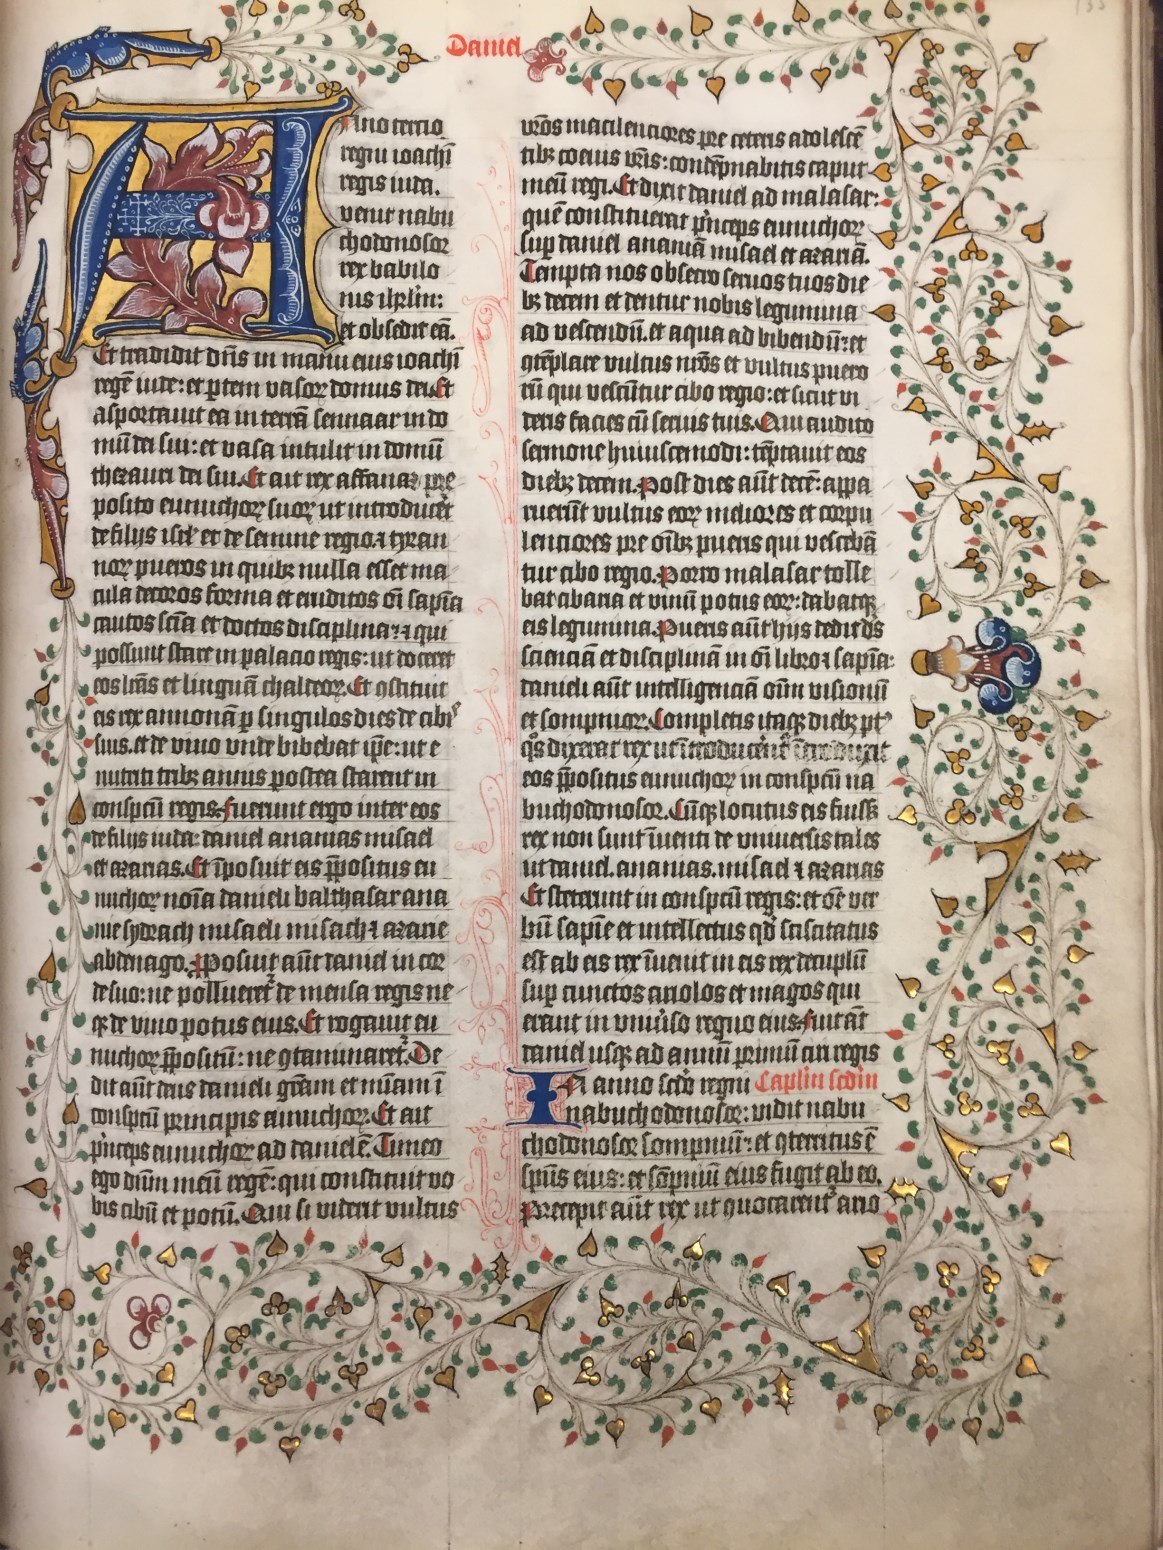 Daniel
Anno tercio
regni ioachī
regis iuda.
venit nabu
chodonosor
rex babilo
nis ihrlm̄:
et obsedit eā.
Et tradidit dn̄s in manu eius ioachī
regē iude: et ꝑtem vasoꝝ domus dei. Et
asportauit ea in terrā sennaar in do
mū dei sui: et vasa intulit in domū
thezauri dei sui. Et ait rex affanaz pre
posito eunuchoꝝ suoꝝ ut introducēt
de filijs isrl̄ et de semine regio ⁊ tyran
noꝝ pueros in quibꝫ nulla esset ma
cula decoros forma et eruditos oī sapīa
cautos scīa et doctos disciplina: ⁊ qui
possunt stare in palacio regis: ut doceret
eos lrās et linguā chaldeoꝝ. Et ꝯstituit
eis rex annonā ꝑ singulos dies de cibis
suis. et de vino vnde bibebat ip̄e: ut e
nutriti tribꝫ annis postea starent in
conspcū regis. Fuerunt ergo inter eos
de filijs iuda: daniel ananias misael
et azarias. Et īposuit eis p̄positus eu
nuchoꝝ noīa danieli balthasar ana
nie sydrach misaeli misach ⁊ azarie
abdenago. Posuit aūt daniel in cor
de suo: ne pollueret̉ de mensa regis ne
qꝫ de vino potus eius. Et rogauit eu
nuchoꝝ p̄positū: ne ꝯtaminaret̉. De
dit aūt deus danieli grām et mīam ī
conspcū principis eunuchoꝝ. Et ait
p̄nceps eunuchoꝝ ad danielē. Timeo
ego dn̄m meū regē: qui constituit vo
bis cibū et potū. Qui si viderit vultus
vr̄os macilentiores pre ceteris adolescē
tibꝫ coeuis vr̄is: condēpnabitis caput
meū regi. Et dixit daniel ad malasar:
quē constituerat p̄nceps eunuchoꝝ
suꝑ daniel ananiā misael et azariā.
Tempta nos obsecro seruos tuos die
bꝫ decem et dentur nobis legumina
ad vescendū. et aqua ad bibendū: et
ꝯtēplare vultus nr̄os et vultus puero
rū qui vescūtur cibo regio: et sicut vi
deris facies cū seruis tuis. Qui audito
sermone huiuscemodi: tēptauit eos
diebꝫ decem. Post dies aūt decē: appa
ruerūt vultus eoꝝ meliores et corpu
lentiores pre oībꝫ pueris qui vescebā
tur cibo regio. Porro malasar tolle
bat cibaria et vinū potus eoꝝ: dabatqꝫ
eis legumina. Pueris aūt hijs dedit d̄s
scienciā et disciplinā in oī libro ⁊ sapīa:
danieli aūt intelligenciā oīm visionū
et sompnioꝝ. Completis itaqꝫ diebꝫ pt̉
q̄s dixerat rex ut ītroducēnt̉ ītroduxit
eos p̄positus eunuchoꝝ in conspcū na
buchodonosor. Cūqꝫ locutus eis fuiss̄
rex non sunt īuenti de vniuersis tales
ut daniel. ananias. misael ⁊ azarias
Et steterunt in conspcū regis: et oē ver
bū sapīe et intellectus qd̄ sciscitatus
est ab eis rex īuenit in eis rex decuplū
suꝑ cunctos ariolos et magos qui
erant in vniūso regno eius. Fuit aūt
daniel usqꝫ ad annū primū ciri regis
In anno scd̄o regni Caplm̄ scd̄m
nabuchodonosor: vidit nabu
chodonosor sompniū: et ꝯterritus ē
spūs eius: et sōpniū eius fugit ab eo.
Precepit aūt rex ut ꝯuocarent̉ ario